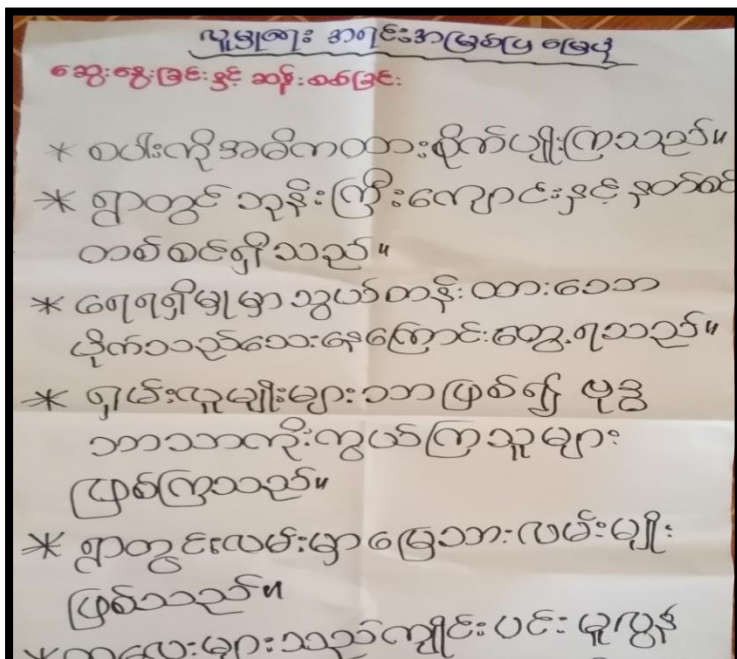 လူမှုရေး အရင်းအမြစ်ပြ မြေပုံ
ဆွေးနွေးခြင်းနှင့် ဆန်းစစ်ခြင်း
* စပါးကိုအဓိကထားစိုက်ပျိုးကြသည်။
* ရွာတွင် ဘုန်းကြီးကျောင်းနှင့် နတ်စင်
တစ်စင်ရှိသည်။
* ရေရရှိမှုမှာ သွယ်တန်းထားသော
ပိုက်သည်သေးနေကြောင်းတွေ့ရသည်။
* ရှမ်းလူမျိုးများသာဖြစ်၍ ဗုဒ္ဓ
ဘာသာကိုးကွယ်ကြသူများ
ဖြစ်ကြသည်။
* ရွာတွင်းလမ်းမှာမြေသားလမ်းမျိုး
ဖြစ်သည်။
* ကလေးများသည်ကျိုင်းပင်းမူလွန်